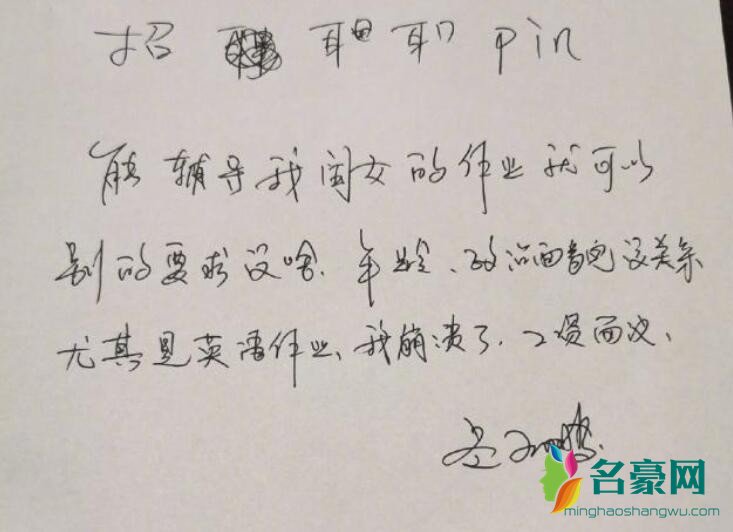 招 耳 职 pin
能辅导我闺女的作业就可以
别的要求没啥.年龄、政治面貌没关系
尤其是英语作业、我崩溃了.工资面议、
名豪网
minghaoshangwu.com